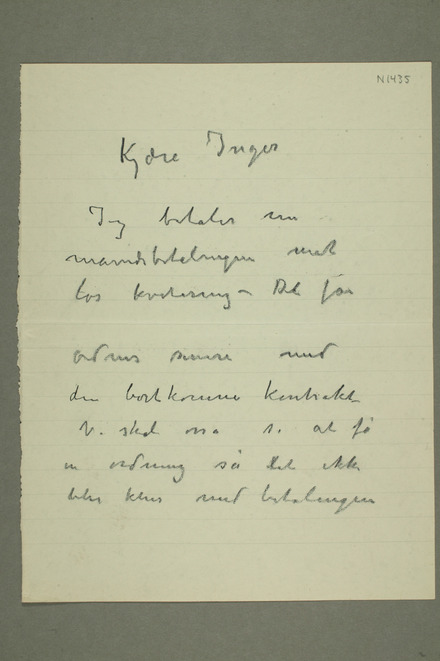 N1435
Kjære Inger
Jeg betaler nu
maanedsbetalingen mot
løs kvittering – Det får
ordnes senere med
den bortkomne kontrakt
Vi skal osså se at få
en ordning så det ikke
blir kluss med betalingen